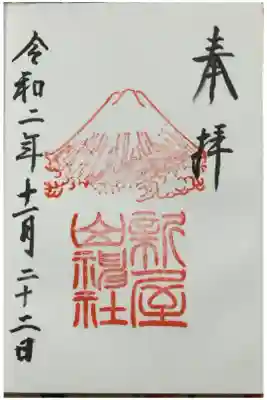 奉拝
新屋
山神社
令和二年十一月二十二日